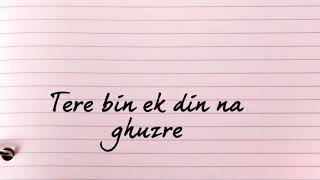 Tere bin ek din na
ghuzre